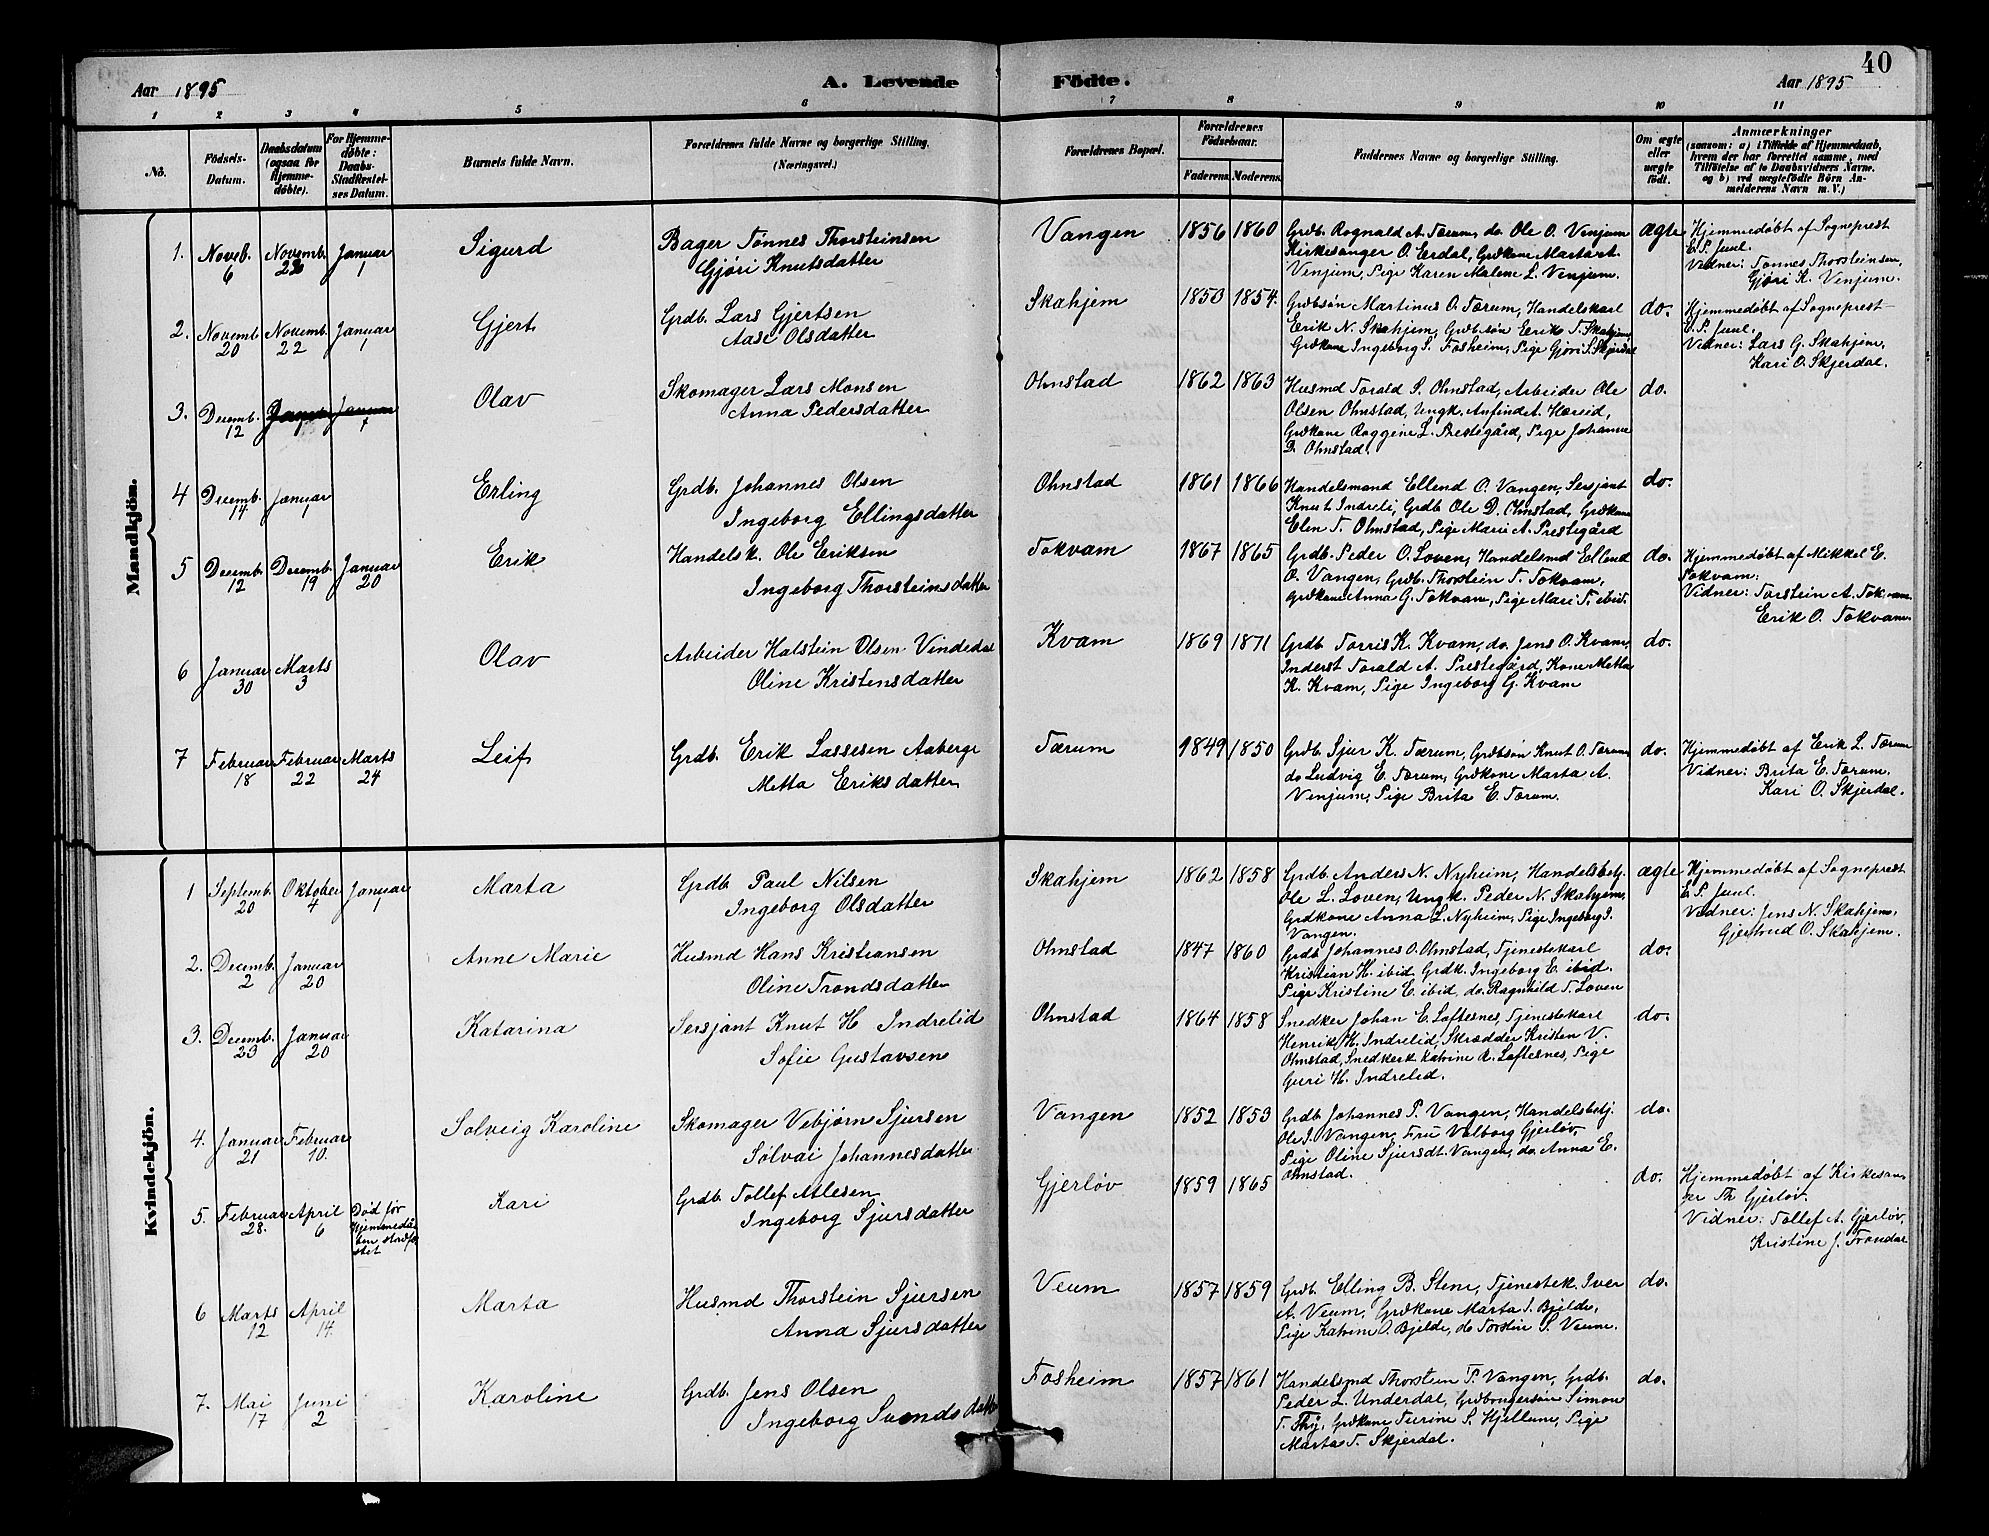 40
Aar 1895 A. Levende Födte. Aar 1895
1 2 3 4 5 6 7 8 9 10 11
No. Födsels-Datum. Daabsdatum (ogsaa for Hjemme-döbte). For Hjemme-döbte: Daabs-Stadfæstel-ses Datum. Barnets fulde Navn. Forældrenes fulde Navne og borgerlige Stilling. (Næringsvei.) Forældrenes Bopæl. Forældrenes Födselsaar. Faderens. Moderens. Faddernes Navne og borgerlige Stilling. Om ægte eller uægte födt. Anmærkninger (saasom: a) i Tilfælde af Hjemmedaab, hvem der har forrettet samme, med Tilföielse af to Daabsvidners Navne. og b) ved uægtefödte Börn An-melderens Navn m. V.)
Mandkjön.
1. Noveb. 6 Novemb. Januar 1 Sigurd
Bager Tönnes Thorsteinsen
Gjøri Knutsdatter
Vangen 1856 1860
Grdb. Rognald A. Tærum, do. Ole O. Vinjum
Kirkesanger O. Erdal, Grdkone Marta A.
Venjum, Pige Karen Malene L. Venjum.
ægte
Hjemmedøbt af Sogneprest
E. P. Juul.
Vidner: Tönnes Thorsteinsen,
Gjøri K. Venjum.
2. Novemb. 20 Novemb. 22 Januar 1 Gjert
Grdb. Lars Gjertsen
Aase Olsdatter
Skahjem 1850 1854.
Grdbsön Martinus O. Tærum, Handelskarl
Erik N. Skahjem, Grdbsøn Erik T. Skahjem,
Grdkone Ingeborg S. Fosheim, Pige Gjøri S. Skjerdal
do.
Hjemmedøbt af Sogneprest
E. P. Juul.
Vidner: Lars G. Skahjem,
Kari O. Skjerdal.
3. Decemb. 12 Januar Olav
Skomager Lars Monsen
Anna Pedersdatter
Ohnstad 1862 1863
Husmd Torald S. Ohnstad, Arbeider Ole
Olsen Ohnstad, Ungk. Anfind A. Hæreid,
Grdkone Raggine L. Prestegård, Pige Johanne
D. Ohnstad.
do.
4 Decemb. 14 Januar 1 Erling
Grdb. Johannes Olsen
Ingeborg Ellingsdatter
Ohnstad 1861 1866
Handelsmand Ellend O. Vangen, Sersjant
Knut Indreli, Grdb Ole D. Ohnstad, Grdkone
Elen T. Ohnstad, Pige Mari A. Prestegård
do.
5 Decemb. 12 Decemb. 19 Januar 20 Erik
Handelsk. Ole Eriksen
Ingeborg Thorsteinsdatter
Tokvam 1867 1865
Grdb. Peder O. Loven, Handelsmd Ellend
O. Vangen, Grdb. Thorstein T. Tokvam,
Grdkone Anna G. Tokvam, Pige Mari T. ibid.
do.
Hjemmedøbt af Mikkel E.
Tokvam:
Vidner: Torstein A. Tokvam
Erik O. Tokvam
6 Januar 30 Marts 3 Olav
Arbeider Halstein Olsen Vindedal
Oline Kristensdatter
Kvam 1869 1871
Grdb Torris K. Kvam, do. Jens O. Kvam,
Inderst Torald A. Prestegård, Kone Metta
K. Kvam, Pige Ingeborg G. Kvam
do.
7 Februar 18 Februar 22 Marts 24 Leif
Grdb. Erik Lassesen Aaberge
Metta Eriksdatter
Tærum 1849 1850
Grdb. Sjur K. Tærum, Grdbsön Knut O. Tærum
do Ludvig E. Tærum, Grdkone Marta A.
Venjum, Pige Brita E. Tærum.
do.
Hjemmedøbt af Erik L. Tærum
Vidner: Brita E. Tærum.
Kari O. Skjerdal.
Kvindekjön.
1 Septemb. 20 Oktober 4 Januar 1 Marta
Grdb. Paul Nilsen
Ingeborg Olsdatter
Skahjem 1862 1858
Grdb. Anders N. Nyheim, Handelsbetj.
Ole L. Loven, Ungk. Peder N. Skahjem,
Grdkone Anna L. Nyheim, Pige Ingeborg I.
Vangen.
ægte
Hjemmedøbt af Sogneprest
E. P. Juul.
Vidner: Jens N. Skahjem,
Gjertrud O. Skahjem.
2. Decemb. 2 Januar 20 Anne Marie
Husmd Hans Kristiansen
Oline Trondsdatter
Ohnstad 1847 1860
Grdb Johannes O. Ohnstad, Tjenestekarl
Kristian H. ibid, Grdk. Ingeborg E. ibid.
Pige Kristine E. ibid, do. Ragnhild T. Loven
do.
3. Decemb. 23 Januar 20 Katarina
Sersjant Knut H Indrelid
Sofie Gustavsen
Ohnstad 1864 1858
Snedker Johan E. Loftesnes, Tjenestekarl
Henrik H. Indrelid, Skrædder Kristen V.
Ohnstad, Snedkerk. Katrine A. Loftesnes, Pige
Guri H. Indrelid.
do.
4. Januar 21 Februar 10. Solveig Karoline
Skomager Vebjørn Sjursen
Sølvai Johannesdatter
Vangen 1852 1853
Grdb Johannes P. Vangen, Handelsbetj.
Ole I. Vangen, Fru Valborg Gjerløv,
Pige Oline Sjursdt. Vangen, do. Anna E.
Ohnstad.
do.
5. Februar 28. April 6 Død før Hjemmedå-ben stadfæ-stet Kari
Grdb Tollef Atlesen
Ingeborg Sjursdatter
Gjerløv 1859 1865
do.
Hjemmedøbt af Kirkesan-
ger Th Gjerløv.
Vidner: Tollef A. Gjerløv,
Kristine J. Trondal
6 Marts 12 April 14. Marta
Husmd Thorstein Sjursen
Anna Sjursdatter
Veum 1857 1859
Grdb. Elling B. Stene, Tjenestek. Iver
A. Veum, Grdkone Marta S. Bjelde,
Pige Katrine O. Bjelde, do Torstine S. Veum.
do.
7. Mai 17 Juni 2 Karoline
Grdb. Jens Olsen
Ingeborg Svendsdatter
Fosheim 1857 1861
Handelsmd Thorstein P. Vangen, Grdb.
Peder L. Underdal, Grdbrugersön Simon
T. Thy, Grdkone Turine S. Hjellum, Pige
Marta T. Skjerdal.
do.